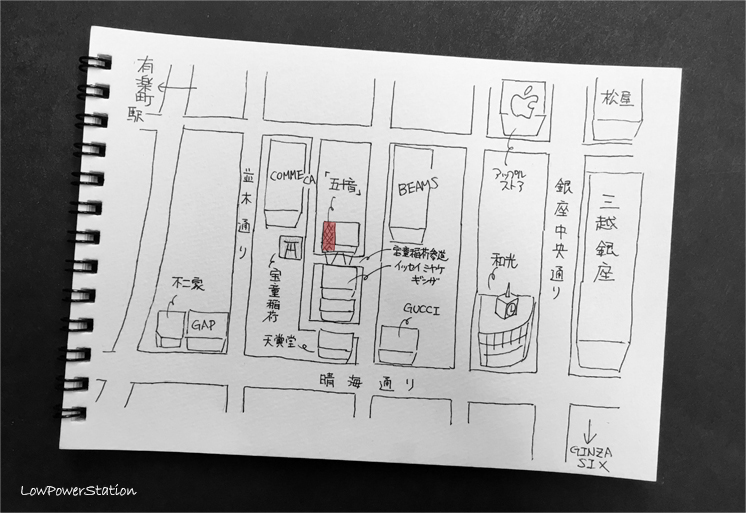 有楽町
駅
松屋
アップル
ストア
並木通り
COMME CA
「五十音」
BEAMS
銀座中央通り
三越銀座
宝童稲荷参道
イッセイミヤケ
ギンザ
和光
宝童稲荷
不二家
GAP
天賞堂
GUCCI
晴海通り
GINZA
SIX
LowPowerStation